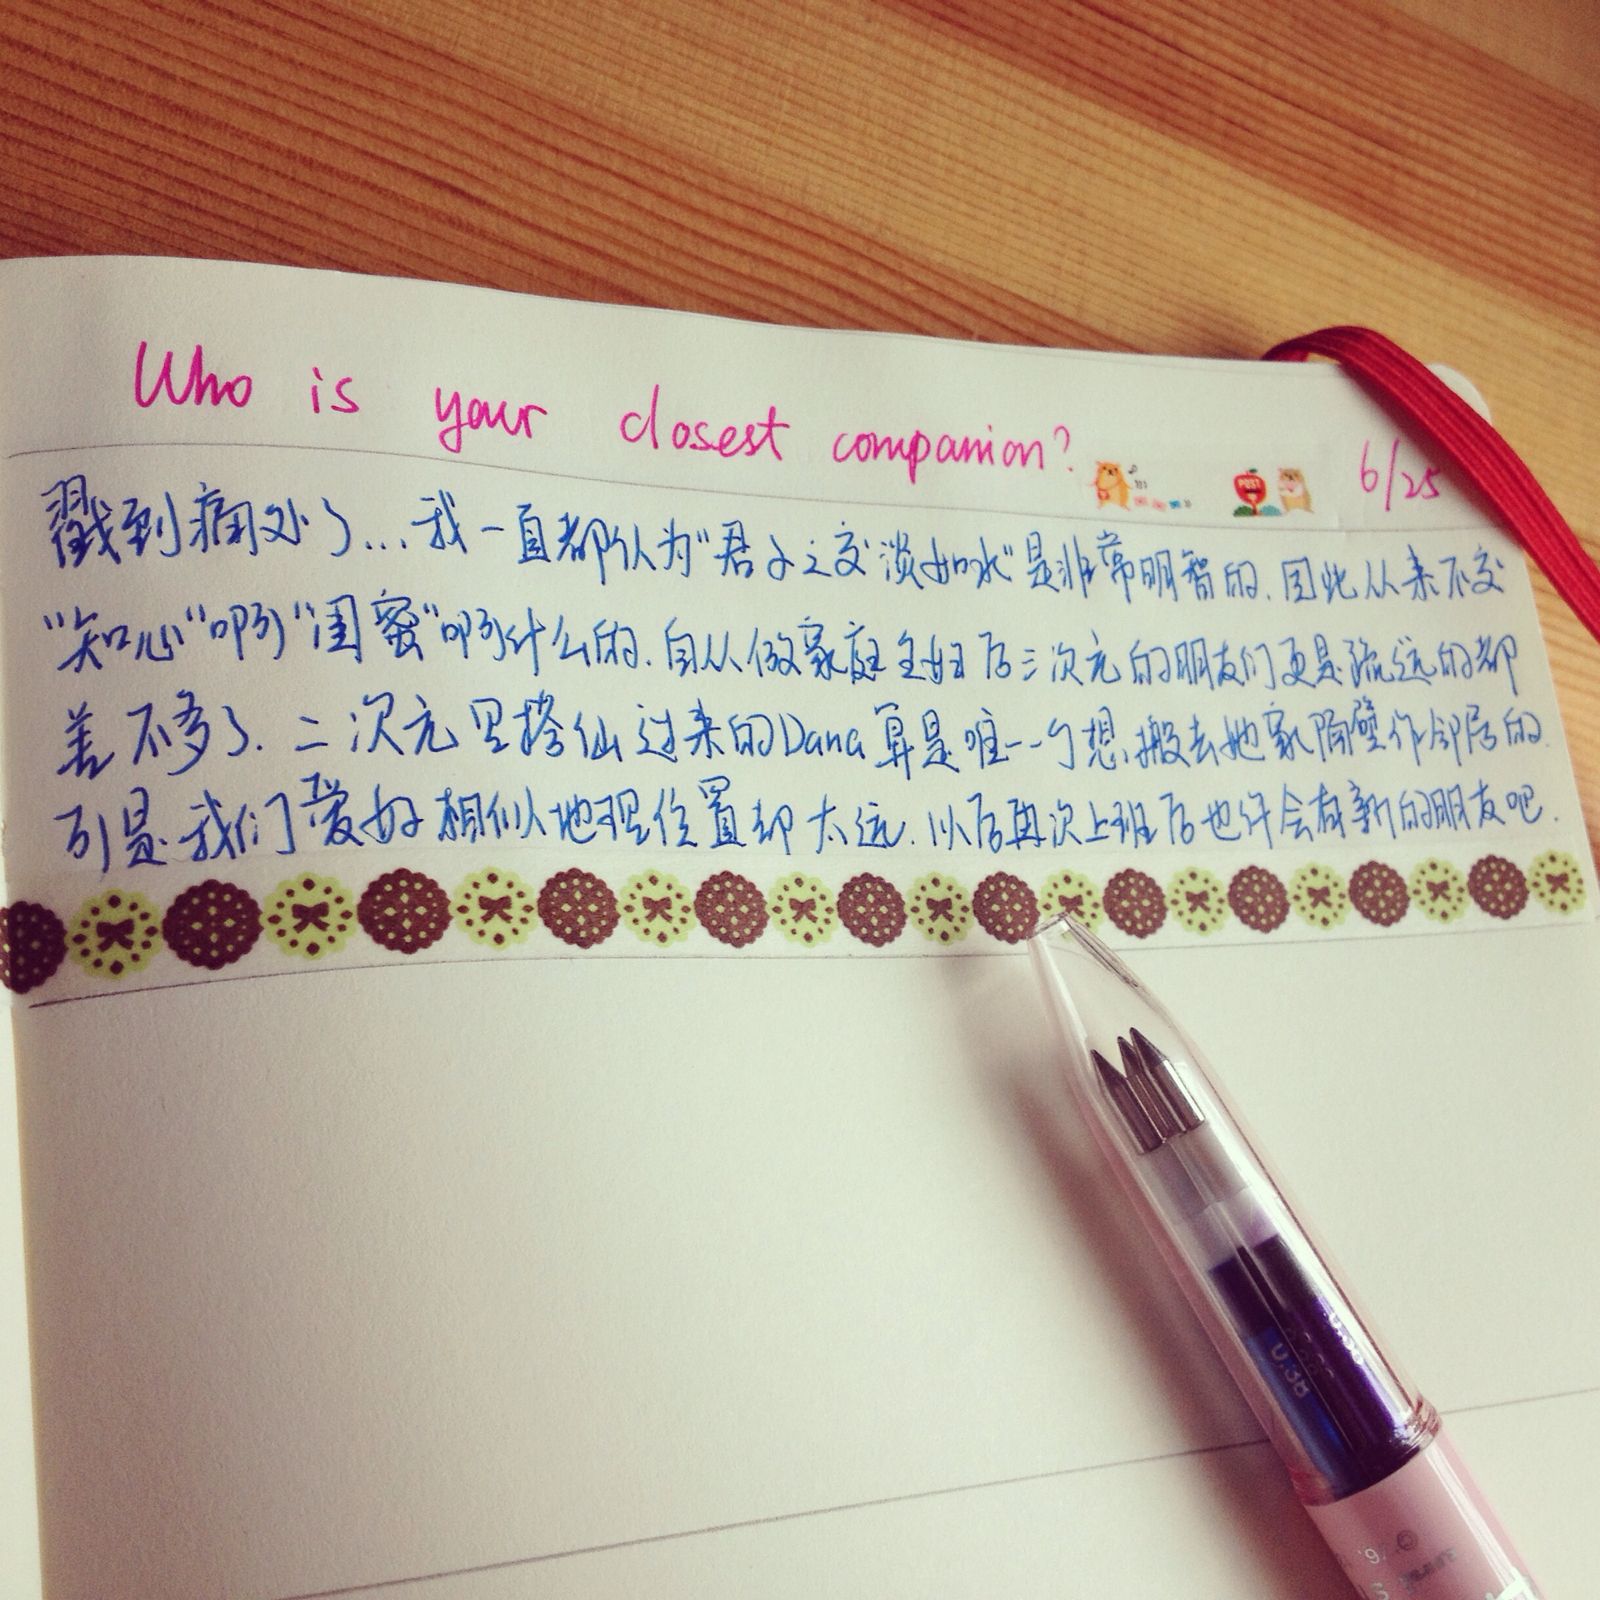 Who is your closest companion?
POST
6/25
戳到痛处了...我一直都认为"君子之交淡如水"是非常明智的.因此从来不交
"知心"啊"闺蜜"啊什么的.自从做家庭主妇后三次元的朋友们更是疏远的都
差不多了.二次元里搭仙过来的Dana算是唯一一个想搬去她家隔壁作邻居的.
可是我们爱好相似地理位置却太远.以后再次上班后也许会有新的朋友吧.
0.38
0.38